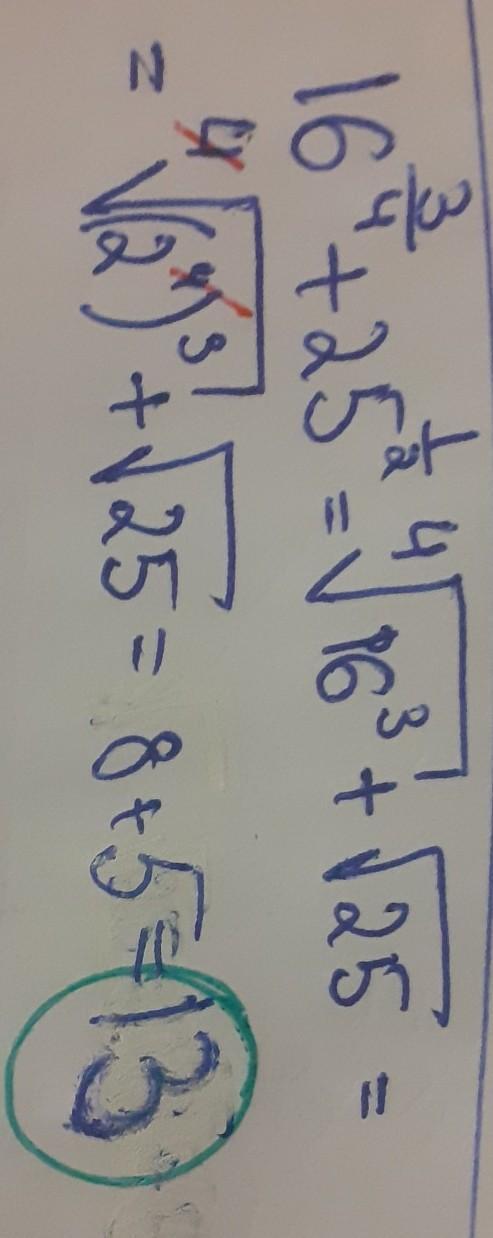 16^{3/4} + 25^{1/2} = ⁴√(16³) + √25 =
= ⁴√((2⁴)³) + √25 = 8 + 5 = 13